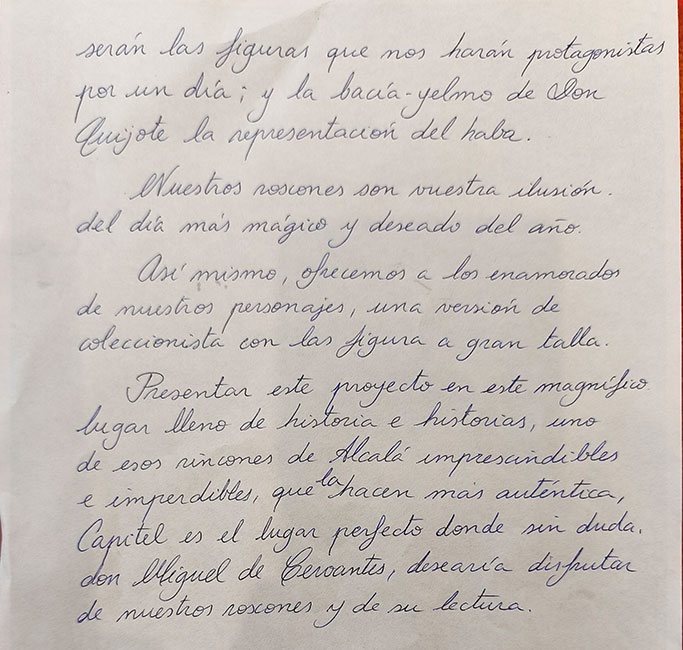 serán las figuras que nos harán protagonistas
por un día; y la bacía-yelmo de Don
Quijote la representación del haba.
Nuestros roscones son vuestra ilusión.
del día más mágico y deseado del año.
Así mismo, ofrecemos a los enamorados
de nuestros personajes, una versión de
coleccionista con las figura a gran talla.
Presentar este proyecto en este magnífico
lugar lleno de historia e historias, uno
de esos rincones de Alcalá imprescindibles
e imperdibles, que la hacen más auténtica,
Capitel es el lugar perfecto donde sin duda,
don Miguel de Cervantes, desearía disfrutar
de nuestros roscones y de su lectura.